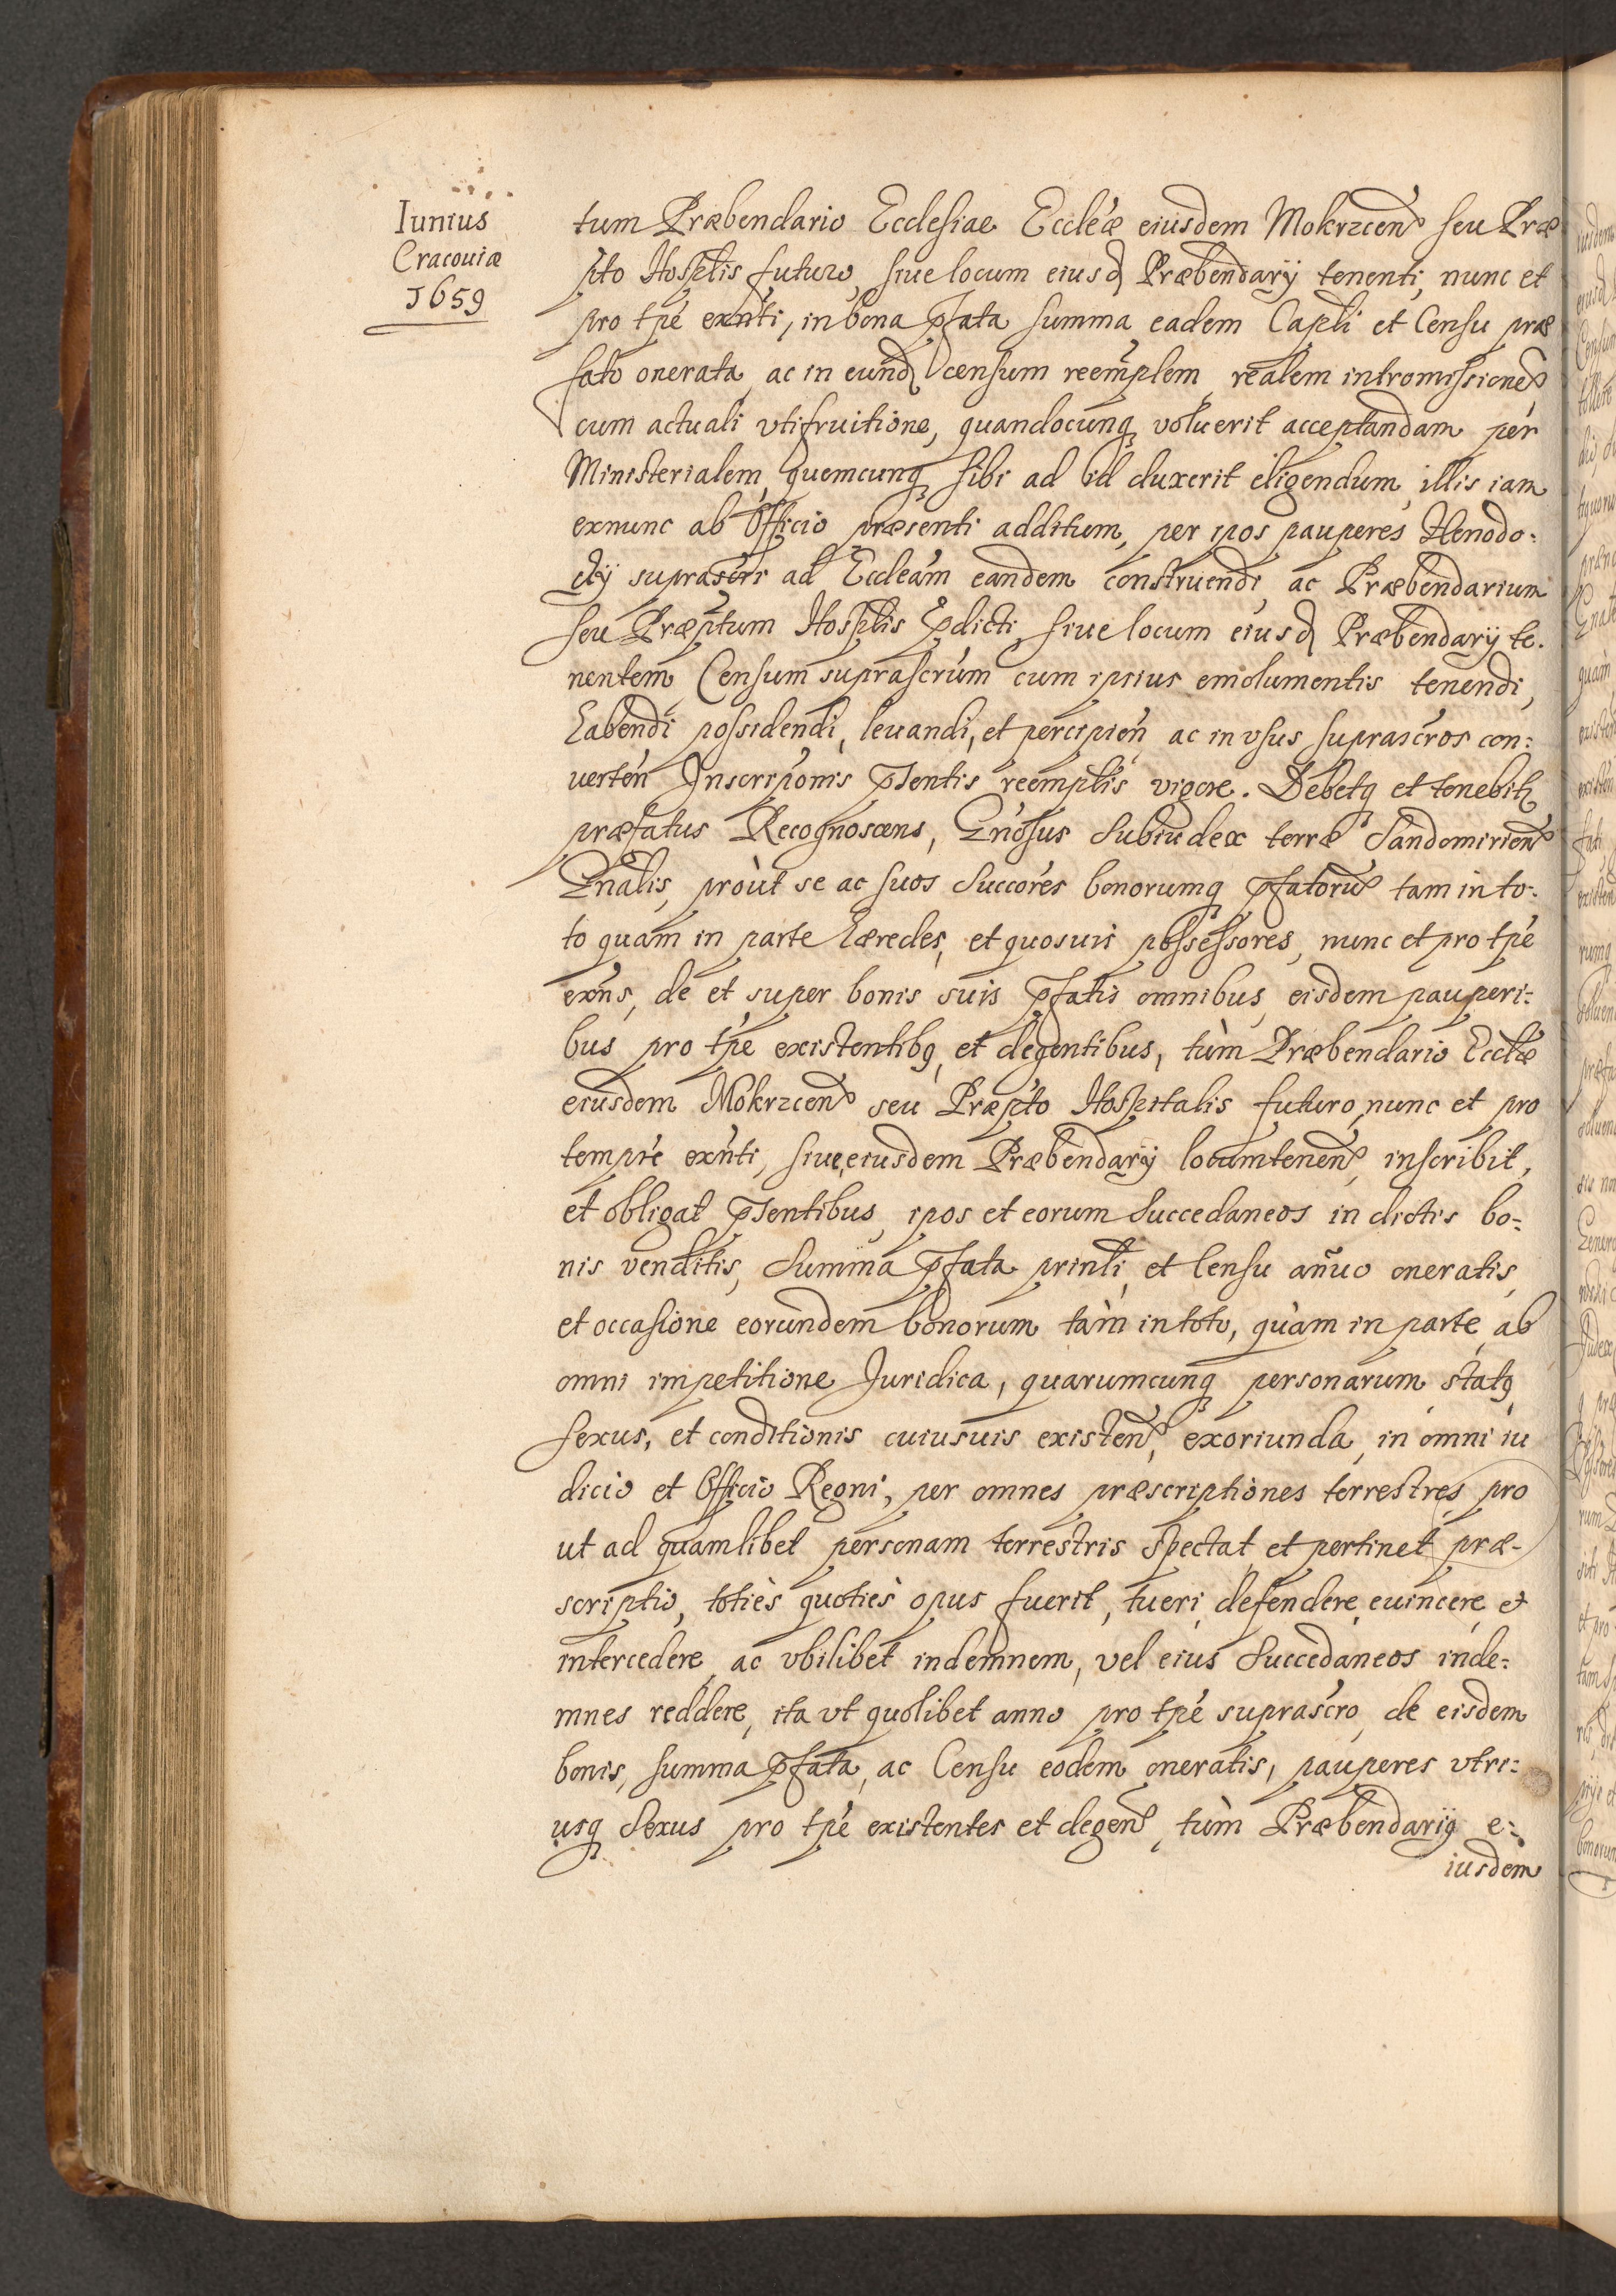 Iunius
Cracouiæ
1659
tum Præbendario Ecclesiae Eccleæ eiusdem Mokrzcen seu Præ
pto Hosplis futuro, siue locum eiusd Præbendarÿ tenenti, nunc et
pro tpe exnti, in bona pfata summa eadem Capli et Censu præ
fato onerata ac in eund censum reemplem realem intromissionem
cum actuali vtifruitione, quandocunq voluerit acceptandam per
Ministerialem quemcunq sibi ad id duxerit eligendum, illis iam
exnunc ab Officio præsenti additum, per ipos pauperes Xenodo:
chÿ suprascri ad Eccleam eandem construendi ac Præbendarium
seu Præptum Hosplis pdicti, siue locum eiusd Præbendarÿ te.
nentem Censum suprascrum cum ipsius emolumentis tenendi,
habendi possidendi, leuandi, et percipien ac in vsus suprascros con:
uerten Inscriponis psentis reemplis vigore. Debetq et tenebitr
præfatus Recognoscens, Gnosus Subiudex terræ Sandomirien
Gnalis, prout se ac suos Succores bonorumq pfatoru tam in to:
to quam in parte hæredes, et quosuis possessores, nunc et pro tpe
exns, de et super bonis suis pfatis omnibus, eisdem pauperi:
bus pro tpe existentibq et degentibus, tùm Præbendario Eccleæ
eiusdem Mokrzcen seu Præpto Hospitalis futuro, nunc et pro
tempre exnti, siue eiusdem Præbendarÿ locumtenen, inscribit,
et obligat psentibus, ipos et eorum Succedaneos in dictis bo:
nis venditis, Summa pfata prinli et Censu añuo oneratis,
et occasione eorundem bonorum tàm in toto, quàm in parte, ab
omni impetitione Juridica, quarumcunq personarum statq
sexus, et conditionis cuiusuis existen, exoriunda, in omni iu
dicio et Officio Regni, per omnes præscriptiones terrestres, pro
ut ad quamlibet personam terrestris spectat et pertinet præ-
scriptio, totiès quotiès opus fuerit, tueri, defendere, euincere et
intercedere, ac vbilibet indemnem, vel eius Succedaneos inde:
mnes reddere, ita vt quolibet anno pro tpe suprascro, de eisdem
bonis, summa pfata, ac Censu eodem oneratis, pauperes vtri:
usq Sexus pro tpe existentes et degen, tùm Præbendariq e:
iusdem